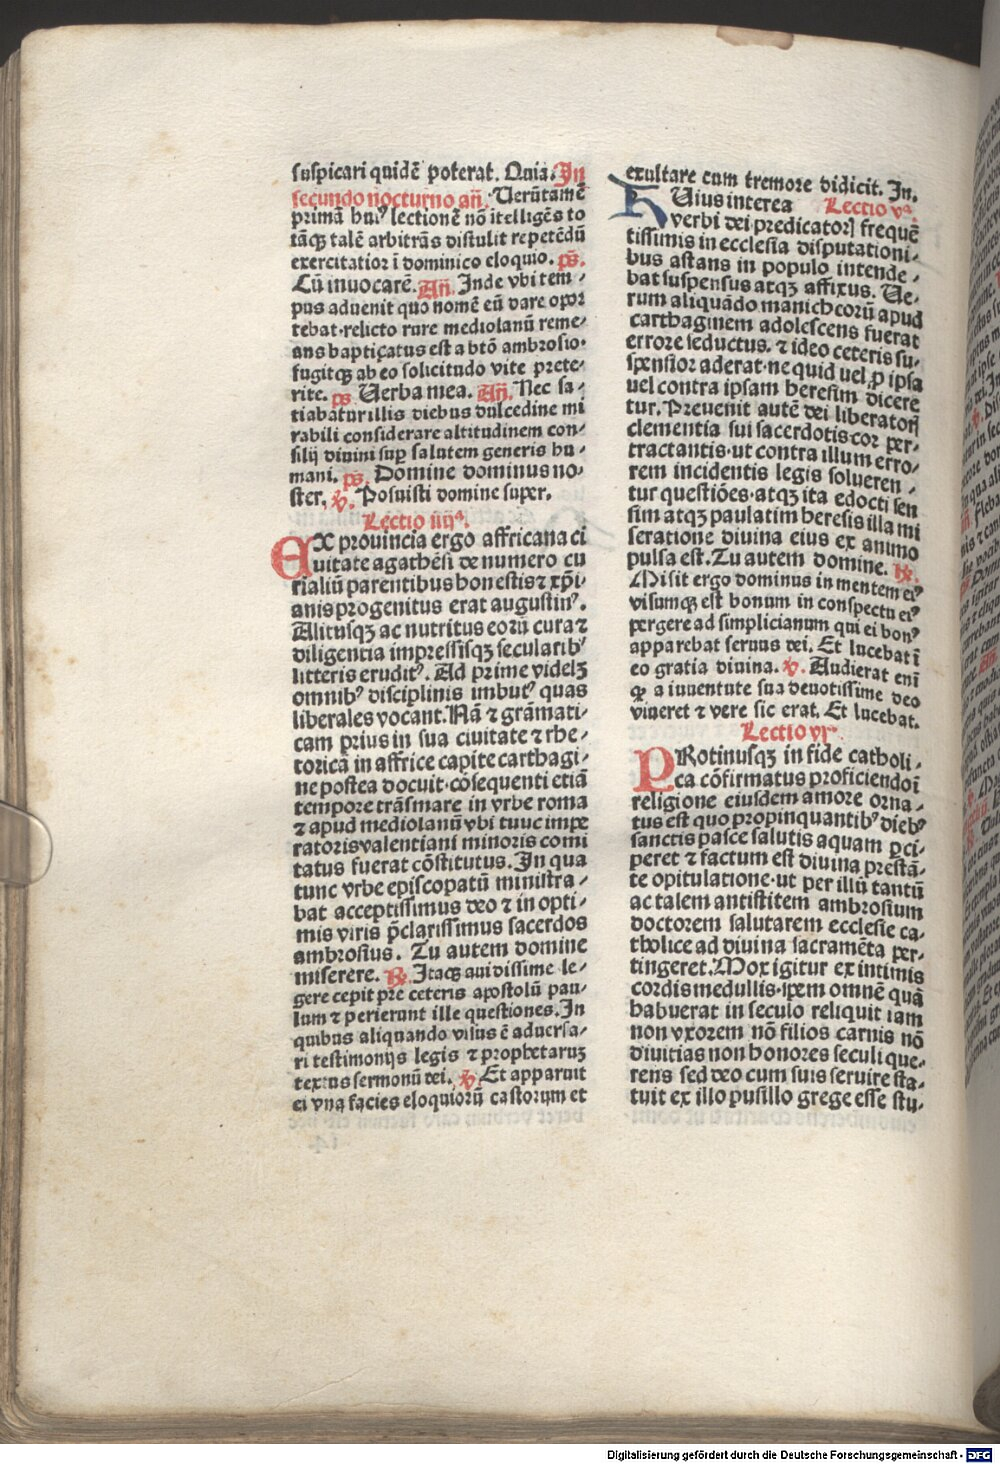 suspicari quidē poterat. Quia. In
secundo nocturno añ. Uerūtamē
primā huiꝰ lectionē nō ītelligēs to
tāqꝫ talē arbitrās distulit repetēdū
exercitatior ī dominico eloquio. ps̄.
Cū inuocarē. Añ. Inde vbi tem⸗
pus aduenit quo nomē eū dare opor
tebat·relicto rure mediolanū reme⸗
ans baptiçatus est a btō ambrosio·
fugitqꝫ ab eo solicitudo vite prete⸗
rite. ps Uerba mea. Añ. Nec sa⸗
tiabatur illis diebus dulcedine mi
rabili considerare altitudinem con⸗
silij diuini suꝑ salutem generis hu⸗
mani. ps̄. Domine dominus no⸗
ster. ℣. Posuisti domine super.
Lectio iiijᵃ.
EX prouincia ergo affricana ci
uitate agathēsi de numero cu
rialiū parentibus honestis ⁊ xp̄i⸗
anis progenitus erat augustinꝰ.
Alitusqꝫ ac nutritus eorū cura ⁊
diligentia impressisqꝫ secularibꝰ
litteris eruditꝰ. Ad prime videlꝫ
omnibꝰ disciplinis imbutꝰ quas
liberales vocant. Nā ⁊ grāmati⸗
cam prius in sua ciuitate ⁊ rhe⸗
toricā in affrice capite carthagi⸗
ne postea docuit·cōsequenti etiā
tempore trāsmare in vrbe roma
⁊ apud mediolanū vbi tunc impe
ratoris valentiani minoris comi
tatus fuerat cōstitutus. In qua
tunc vrbe episcopatū ministra⸗
bat acceptissimus deo ⁊ in opti⸗
mis viris p̄clarissimus sacerdos
ambrosius. Tu autem domine
miserere. ℟. Itaqꝫ auidissime le⸗
gere cepit pre ceteris apostolū pau⸗
lum ⁊ perierunt ille questiones. In
quibus aliquando visus ē aduersa⸗
ri testimonijs legis ⁊ prophetarum
textus sermonū dei. ℣. Et apparuit
ei vna facies eloquiorū castorum et
exultare cum tremore didicit. In.
Lectio vᵃ.
HUius interea
verbi dei predicatorꝫ frequē
tissimis in ecclesia disputationi⸗
bus astans in populo intende⸗
bat suspensus atqꝫ affixus. Ue⸗
rum aliquādo manicheorū apud
carthaginem adolescens fuerat
errore seductus. ⁊ ideo ceteris su⸗
spensior aderat·ne quid uel ꝓ ipsa
uel contra ipsam heresim dicere
tur. Preuenit autē dei liberatorꝫ
clementia sui sacerdotis cor per⸗
tractantis·ut contra illum erro⸗
rem incidentis legis solueren⸗
tur questiōes·atqꝫ ita edocti sen
sim atqꝫ paulatim heresis illa mi
seratione diuina eius ex animo
pulsa est. Tu autem domine. ℟.
Misit ergo dominus in mentem eiꝰ
visumqꝫ est bonum in conspectu eiꝰ
pergere ad simplicianum qui ei bonꝰ
apparebat seruus dei. Et lucebat ī
eo gratia diuina. ℣. Audierat enī
ꝙ a iuuentute sua deuotissime deo
viueret ⁊ vere sic erat. Et lucebat.
Lectio vjᵃ.
PRotinusqꝫ in fide catholi⸗
ca cōfirmatus proficiendo ī
religione eiusdem amore orna⸗
tus est quo propinquantibꝰ diebꝰ
sanctis pasce salutis aquam ꝑci⸗
peret ⁊ factum est diuina prestā⸗
te opitulatione·ut per illū tantū
ac talem antistitem ambrosium
doctorem salutarem ecclesie ca⸗
tholice ad diuina sacramēta per⸗
tingeret. Mox igitur ex intimis
cordis medullis·spem omnē quā
habuerat in seculo reliquit iam
non vxorem nō filios carnis nō
diuitias non honores seculi que⸗
rens sed deo cum suis seruire sta⸗
tuit ex illo pusillo grege esse stu⸗
Digitalisierung gefördert durch die Deutsche Forschungsgemeinschaft - DFG